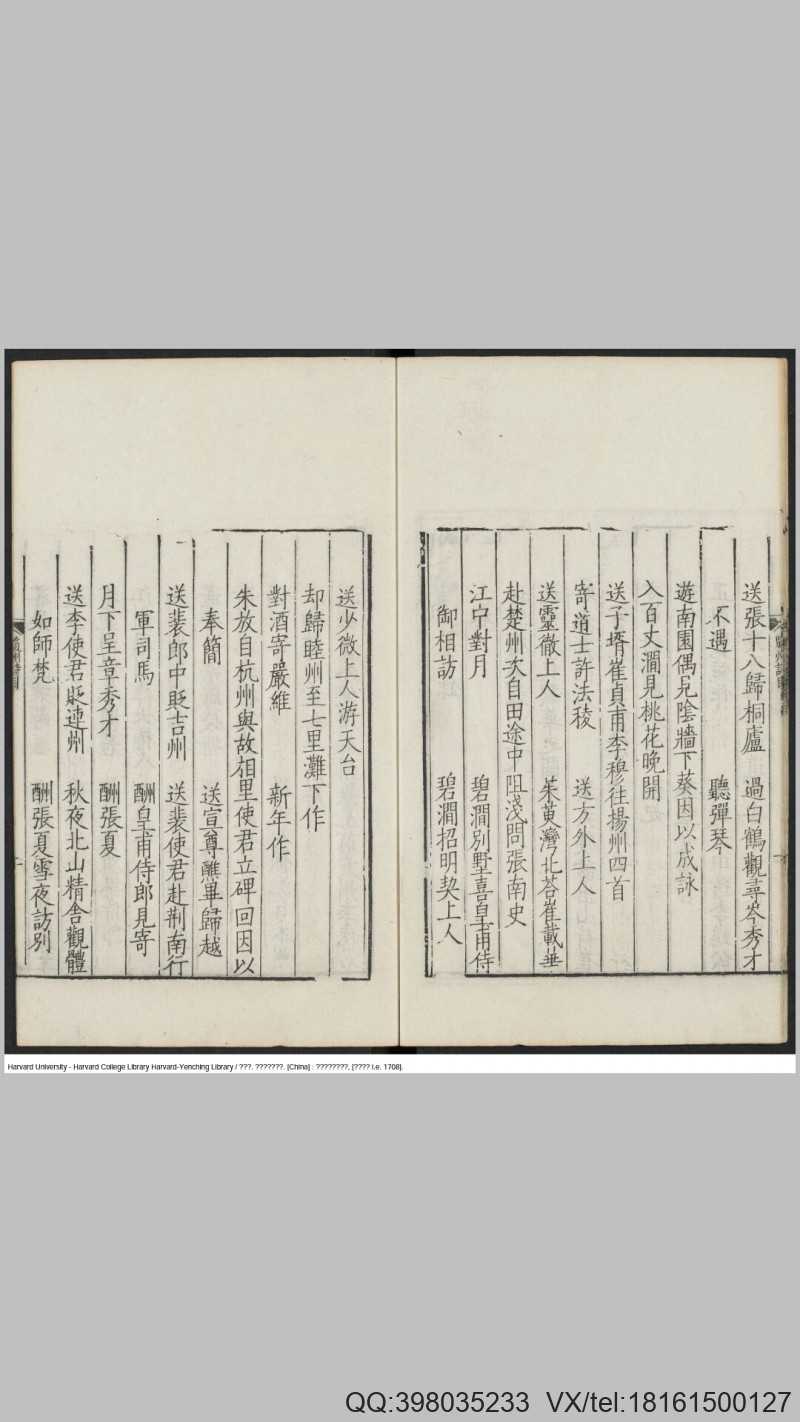 送張十八歸桐廬　過白鶴觀尋岑秀才
不遇　聽彈琴
遊南園偶見陰牆下葵因以成詠
入百丈澗見桃花晚開
送子壻崔貞甫李穆往揚州四首
寄道士許法稜　送方外上人
送靈徹上人　茱萸灣北荅崔載華
赴楚州次自田途中阻淺問張南史
江中對月　碧澗別墅喜皇甫侍
御相訪　碧澗招明契上人
送少微上人游天台
却歸睦州至七里灘下作
對酒寄嚴維　新年作
朱放自杭州與故相里使君立碑回因以
奉簡　送宣尊醮畢歸越
送裴郎中貶吉州　送裴使君赴荆南行
軍司馬　酬皇甫侍郎見寄
月下呈章秀才　酬張夏
送李使君貶連州　秋夜北山精舍觀體
如師梵　酬張夏雪夜訪別
Harvard University - Harvard College Library Harvard-Yenching Library / ???. ???????. [China] : ????????, [???? i.e. 1708].
QQ:398035233 VX/tel:18161500127